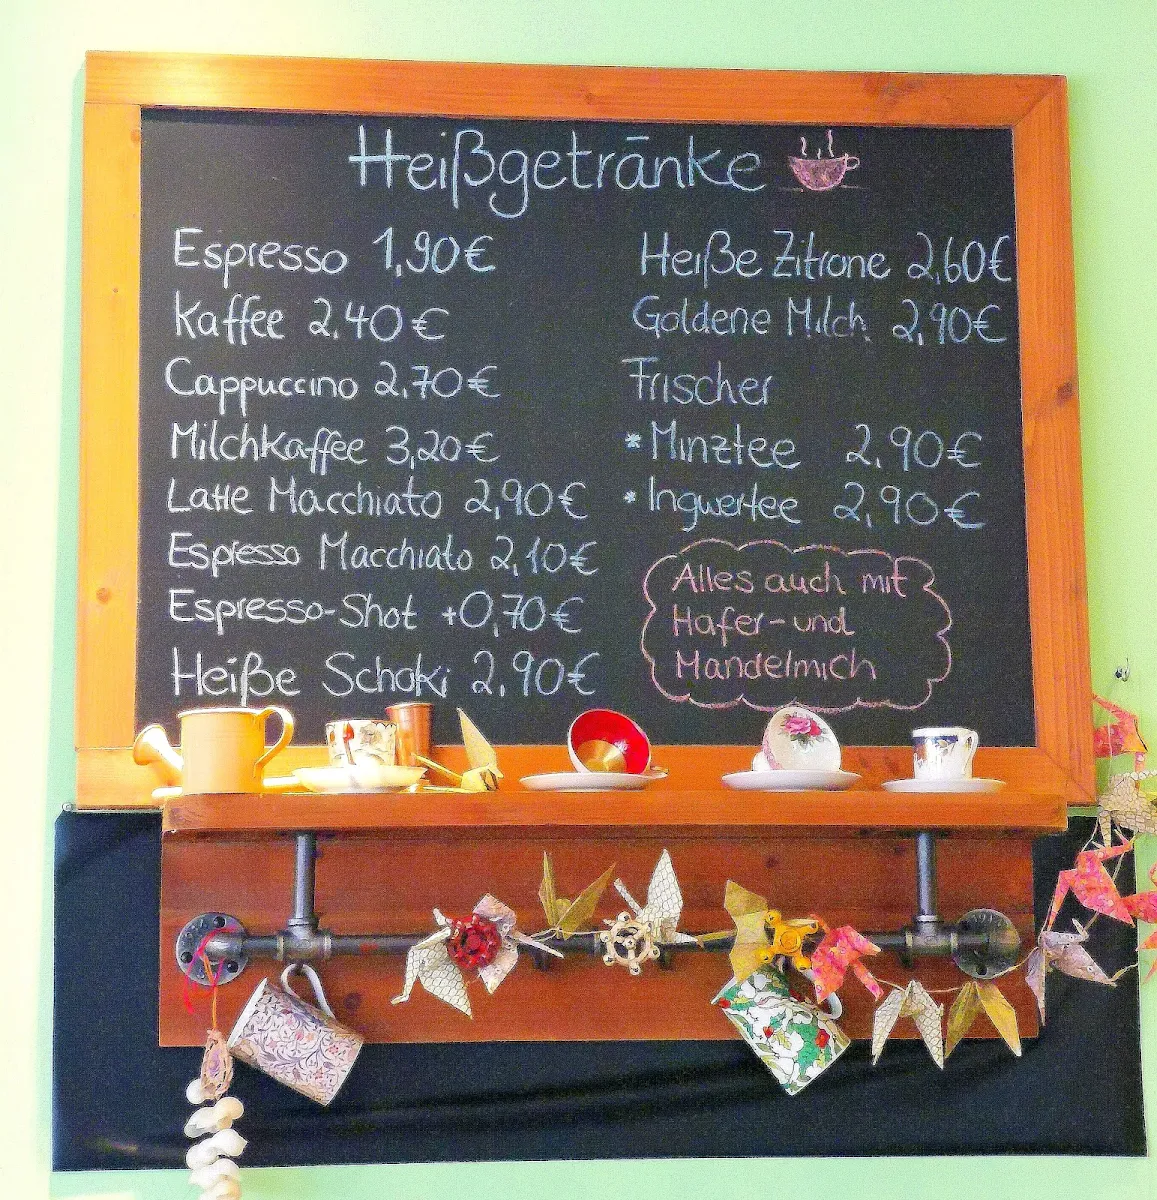 Heißgetränke
Espresso 1,90€
Kaffee 2.40€
Cappuccino 2.70€
Milchkaffee 3,20€
Latte Macchiato 2,90€
Espresso Macchiato 2,10€
Espresso-Shot +0,70€
Heiße Schoki 2,90€
Heiße Zitrone 2,60€
Goldene Milch 2,90€
Frischer
* Minztee 2,90€
* Ingwertee 2,90€
Alles auch mit
Hafer- und
Mandelmich